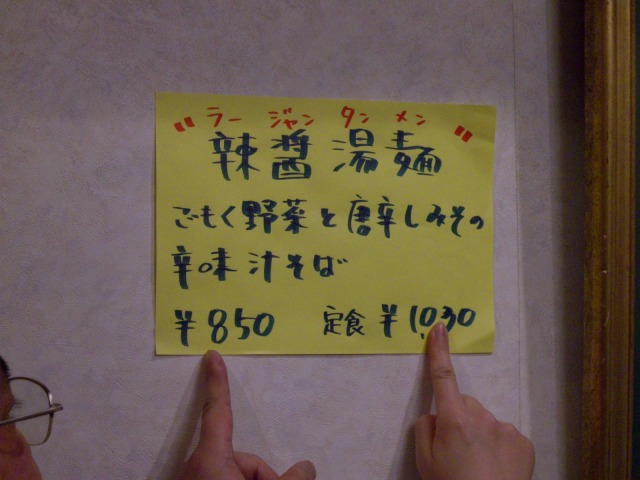 "ラージャンタンメン"
辣醤湯麺
ごもく野菜と唐辛しみその
辛味汁そば
¥850 定食 ¥1,030